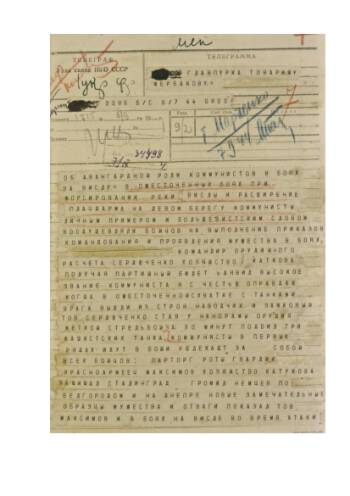 ТЕЛЕГРАФ
ТЕЛЕГРАММА
ГЛАВПУРКА ТОВАРИЩУ
ЩЕРБАКОВУ
ОБ АВАНГАРДНОЙ РОЛИ КОММУНИСТОВ В БОЯХ
НА ВИСЛЕ В ОЖЕСТОЧЕННЫХ БОЯХ ПРИ
ФОРСИРОВАНИИ РЕКИ ВИСЛЫ И РАСШИРЕНИЕ
ПЛАЦДАРМА НА ЛЕВОМ БЕРЕГУ КОММУНИСТЫ
ЛИЧНЫМ ПРИМЕРОМ И БОЛЬШЕВИСТСКИМ СЛОВОМ
ВООДУШЕВЛЯЛИ БОЙЦОВ НА ВЫПОЛНЕНИЕ ПРИКАЗОВ
КОМАНДОВАНИЯ И ПРОЯВЛЕНИЯ МУЖЕСТВА В БОЯХ
КОМАНДИР ОРУДИЙНОГО
РАСЧЕТА СЕРДЮЧЕНКО ХОЗЯЙСТВО КАТКОВА
ПОЛУЧАЯ ПАРТИЙНЫЙ БИЛЕТ ЗАЯВИЛ ВЫСОКОЕ
ЗВАНИЕ КОММУНИСТА Я С ЧЕСТЬЮ ОПРАВДАЮ
КОГДА В ОЖЕСТОЧЕННОЙ СХВАТКЕ С ТАНКАМИ
ВРАГА ВЫШЛИ ИЗ СТРОЯ НАВОДЧИК И ЗАМКОВЫЙ
ТОВ СЕРДЮЧЕНКО СТАЛ У ПАНОРАМЫ ОРУДИЯ
МЕТКОЙ СТРЕЛЬБОЙ ЗА МИНУТ ПОДБИЛ ТРИ
ФАШИСТСКИХ ТАНКА КОММУНИСТЫ В ПЕРВЫХ
РЯДАХ ИДУТ В БОЙ УВЛЕКАЮТ ЗА СОБОЙ
ВСЕХ БОЙЦОВ ПАРТОРГ РОТЫ ГВАРДИИ
КРАСНОАРМЕЕЦ МАКСИМОВ ХОЗЯЙСТВО КАТУКОВА
ЗАЩИЩАЛ СТАЛИНГРАД ГРОМИЛ НЕМЦЕВ ПОД
БЕЛГОРОДОМ И НА ДНЕПРЕ НОВЫЕ ЗАМЕЧАТЕЛЬНЫЕ
ОБРАЗЦЫ МУЖЕСТВА И ОТВАГИ ПОКАЗАЛ ТОВ
МАКСИМОВ И В БОЯХ НА ВИСЛЕ ВО ВРЕМЯ АТАКИ